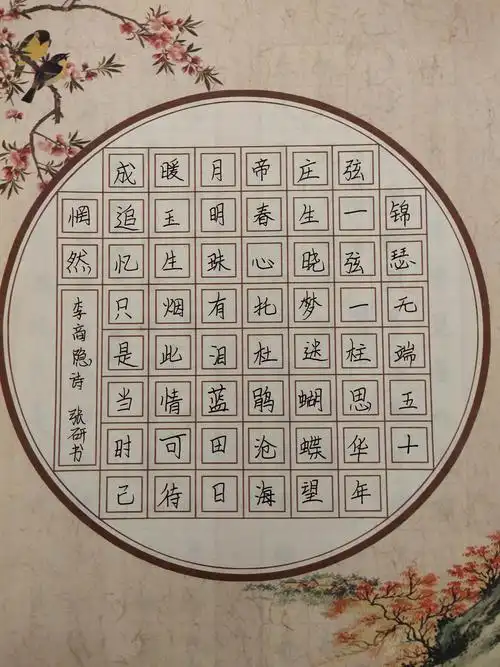 锦瑟无端五十
弦一弦一柱思华年
庄生晓梦迷蝴蝶望
帝春心托杜鹃沧海
月明珠有泪蓝田日
暖玉生烟此情可待
成追忆只是当时已
惘然
李商隐诗 张研书